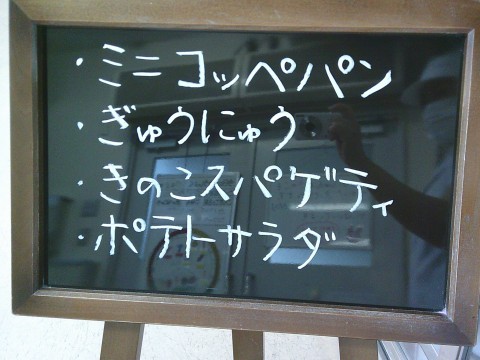 ・ミニコッペパン
・ぎゅうにゅう
・きのこスパゲティ
・ポテトサラダ